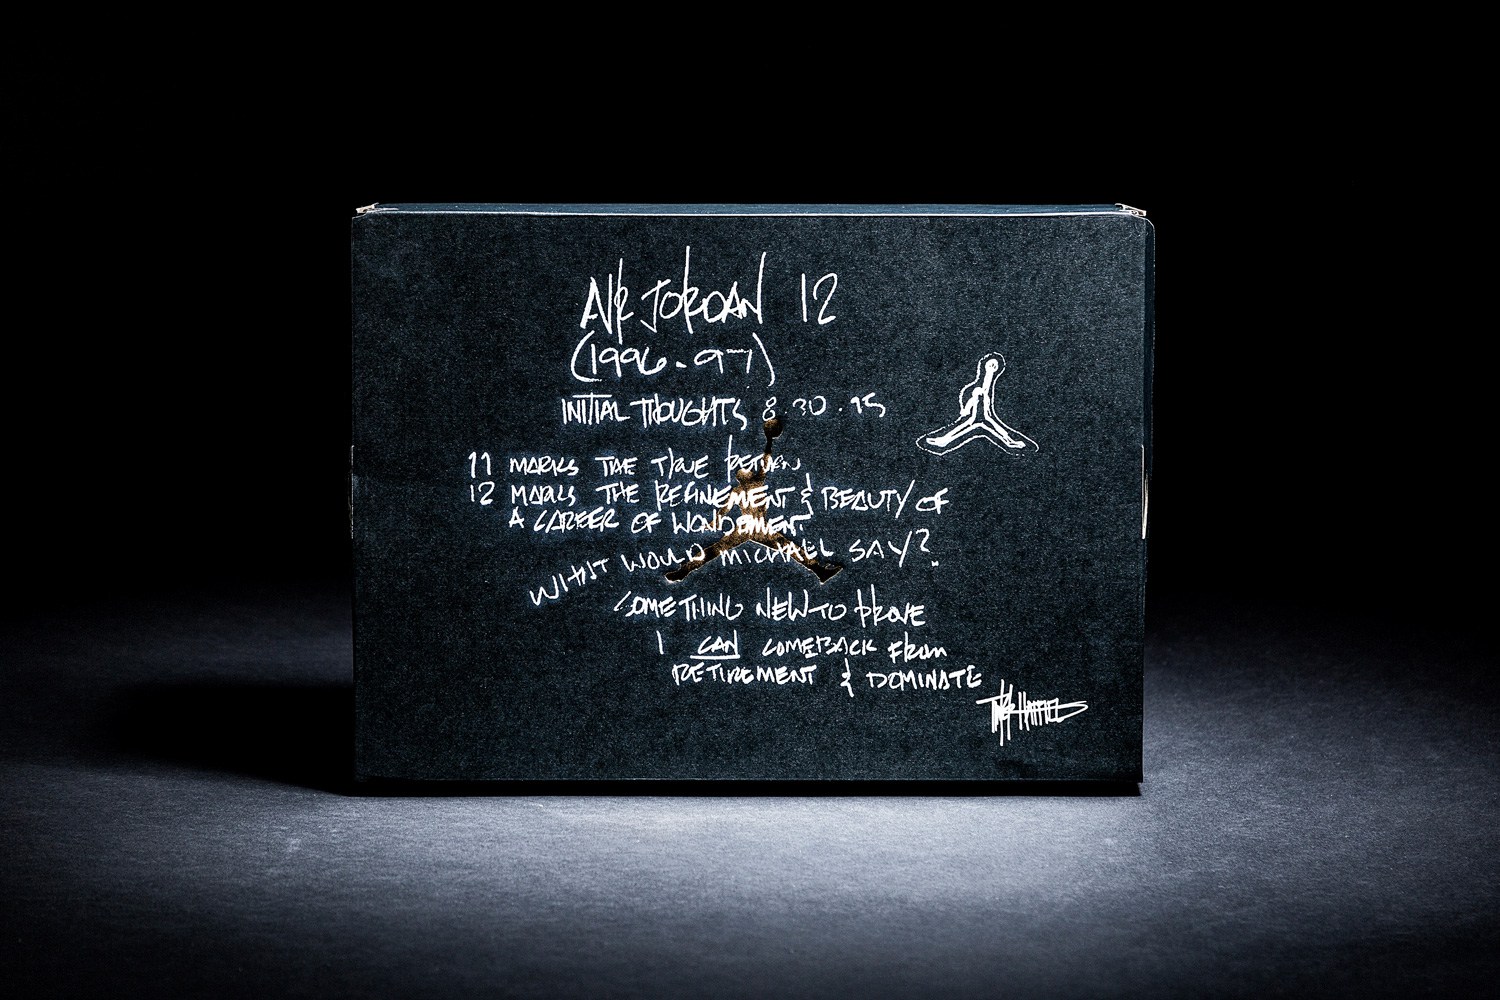 AIR JORDAN 12
(1996-97)
INITIAL THOUGHTS 8.30.95
11 MARKS THE TRUE RETURN
12 MARKS THE REFINEMENT & BEAUTY OF
A CAREER OF WONDERMENT
WHAT WOULD MICHAEL SAY?
SOMETHING NEW TO PROVE
I CAN COMEBACK FROM
RETIREMENT & DOMINATE
TINKER HATFIELD